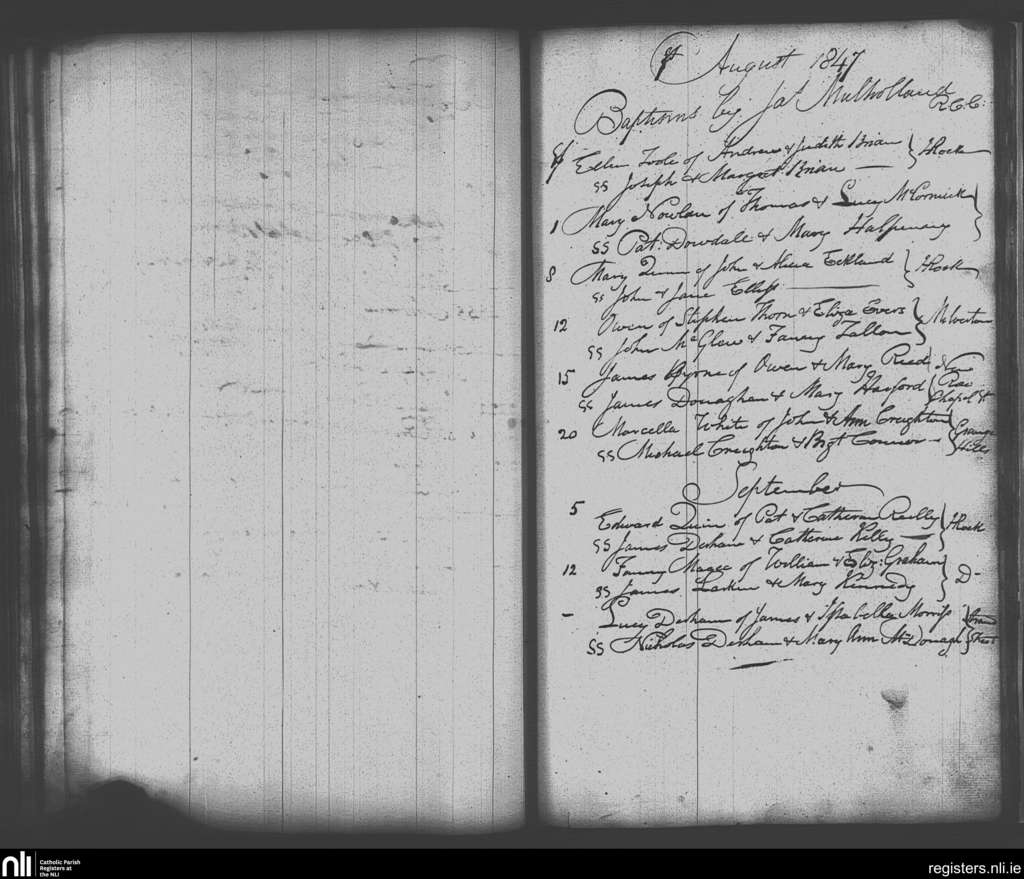 August 1847
Baptisms by Jas Mulholland R.C.C.
Ellen Toole of Andrew & Judith Brian } H Rock
SS Joseph & Margret Brian
1 Mary Nowlan of Thomas & Lucy McCormick }
SS Pat: Dowdale & Mary Halfpenny
8 Mary Quinn of John & Alice Eckland } H Rock
SS John & Jane Elliss
12 Owen of Stephen Thorn & Eliza Evers } Milverton
SS John McGlew & Fanny Tallon
15 James Byrne of Owen & Mary Reed } New
SS James Donaghan & Mary Harford { Row Chapel St
20 Marcella White of John & Ann Creighton } Grange
SS Michael Creighton & Bgt Connor - Hills
September
5
Edward Quin of Pat & Catherine Reilly } H Rock
SS James Derham & Catherine Kelly
12 Fanny Magee of William & Eliz: Graham } D-
SS James Larkin & Mary Kennedy
- Lucy Derham of James & Issabella Morriss } Strand
SS Nicholas Derham & Mary Ann McDonagh } Street
nli
Catholic Parish
Registers at
the NLI
registers.nli.ie